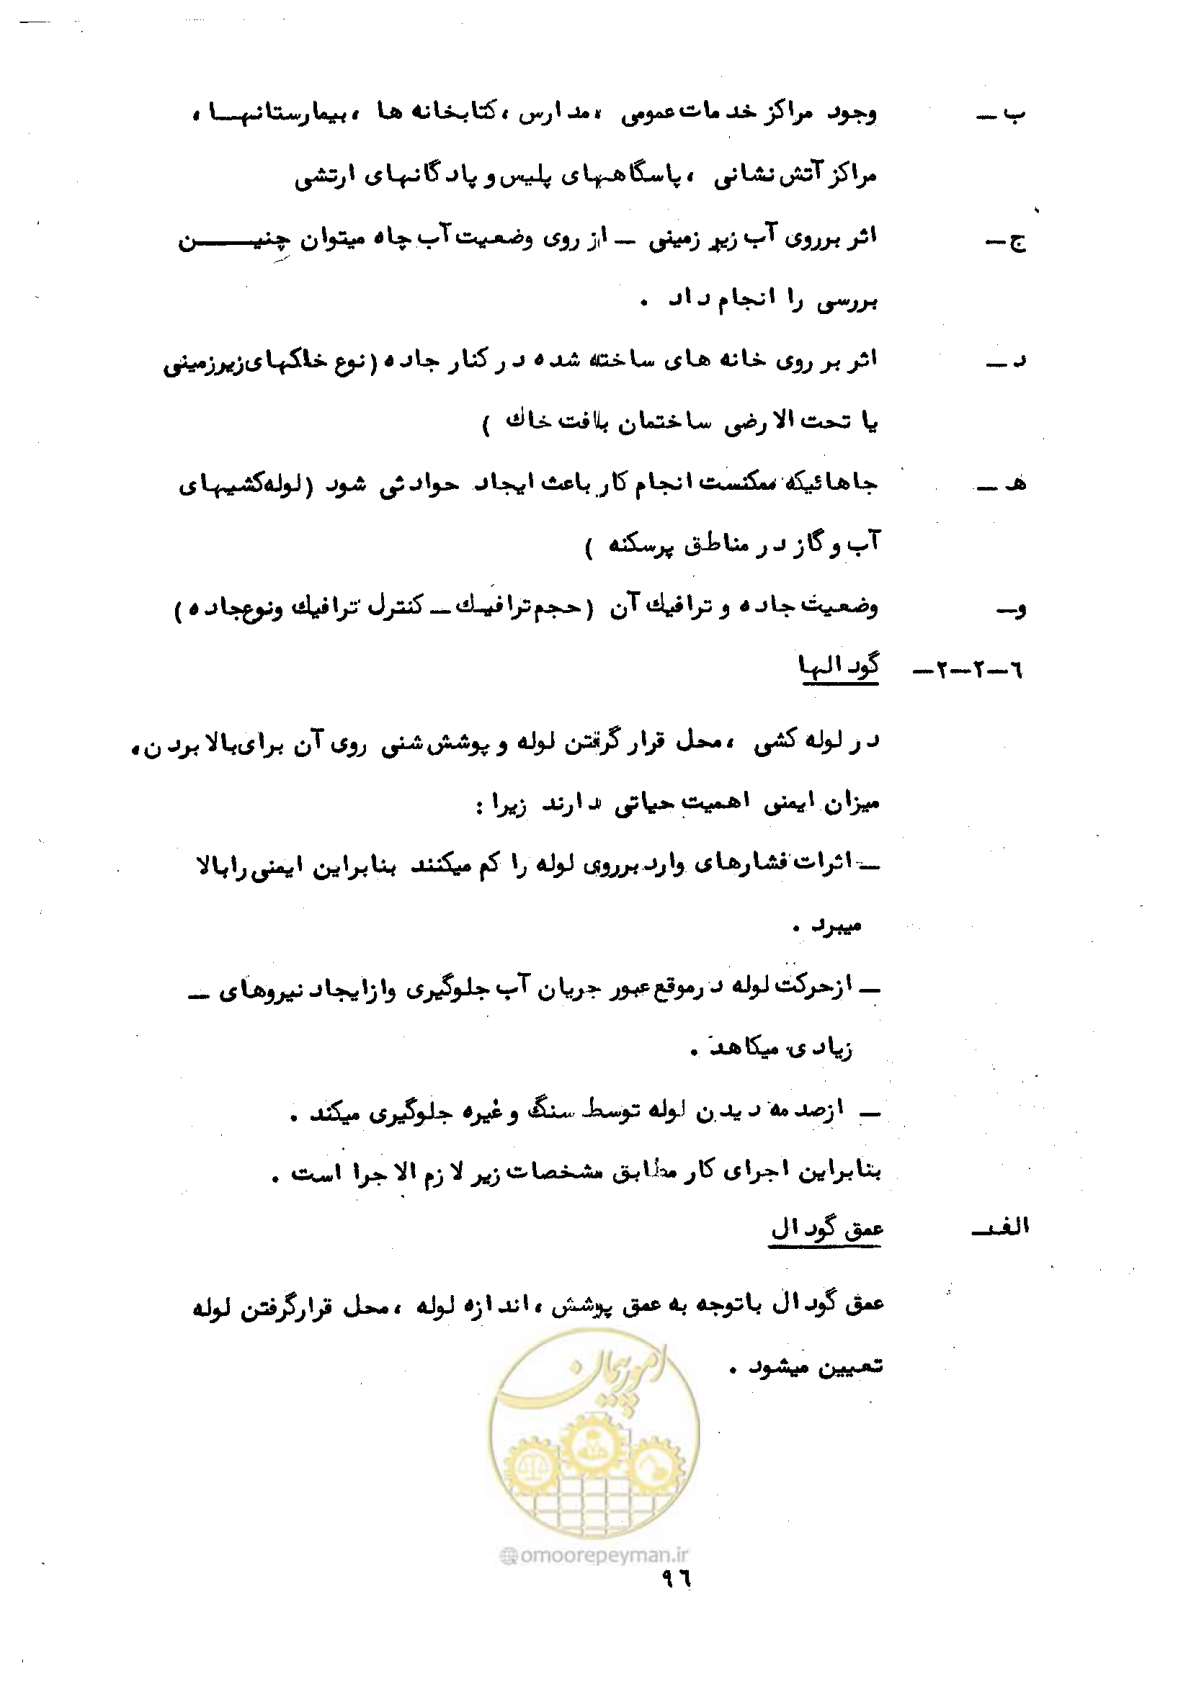 ب ـ وجود مراکز خدمات عمومی ، مدارس ، کتابخانه ها ، بیمارستانهـا ،
مراکز آتش نشانی ، پاسگاههای پلیس و پادگانهای ارتشی
ج ـ اثر برروی آب زیر زمینی ـ از روی وضعیت آب چاه میتوان چنیـــن
بررسی را انجام داد .
د ـ اثر بر روی خانه های ساخته شده در کنار جاده (نوع خاکهای زیرزمینی
یا تحت الارضی ساختمان بافت خاک )
هـ ـ جاهائیکه ممکنست انجام کار باعث ایجاد حوادثی شود (لوله‌کشیهای
آب و گاز در مناطق پرسکنه )
و ـ وضعیت جاده و ترافیک آن (حجم ترافیـک ـ کنترل ترافیک ونوع‌جاده )
۶-۲-۲- گودالها
در لوله کشی ، محل قرار گرفتن لوله و پوشش شنی روی آن برای بالا بردن ،
میزان ایمنی اهمیت حیاتی دارند زیرا :
ـ اثرات فشارهای وارد برروی لوله را کم میکنند بنابراین ایمنی رابالا
میبرد .
ـ ازحرکت لوله درموقع عبور جریان آب جلوگیری وازایجاد نیروهای ـ
زیادی میکاهد .
ـ ازصدمه دیدن لوله توسط سنگ و غیره جلوگیری میکند .
بنابراین اجرای کار مطابق مشخصات زیر لازم الاجرا است .
الف ـ عمق گودال
عمق گودال باتوجه به عمق پوشش ، اندازه لوله ، محل قرارگرفتن لوله
تعیین میشود .
امور پیمان
@omoorepeyman.ir
۹۶